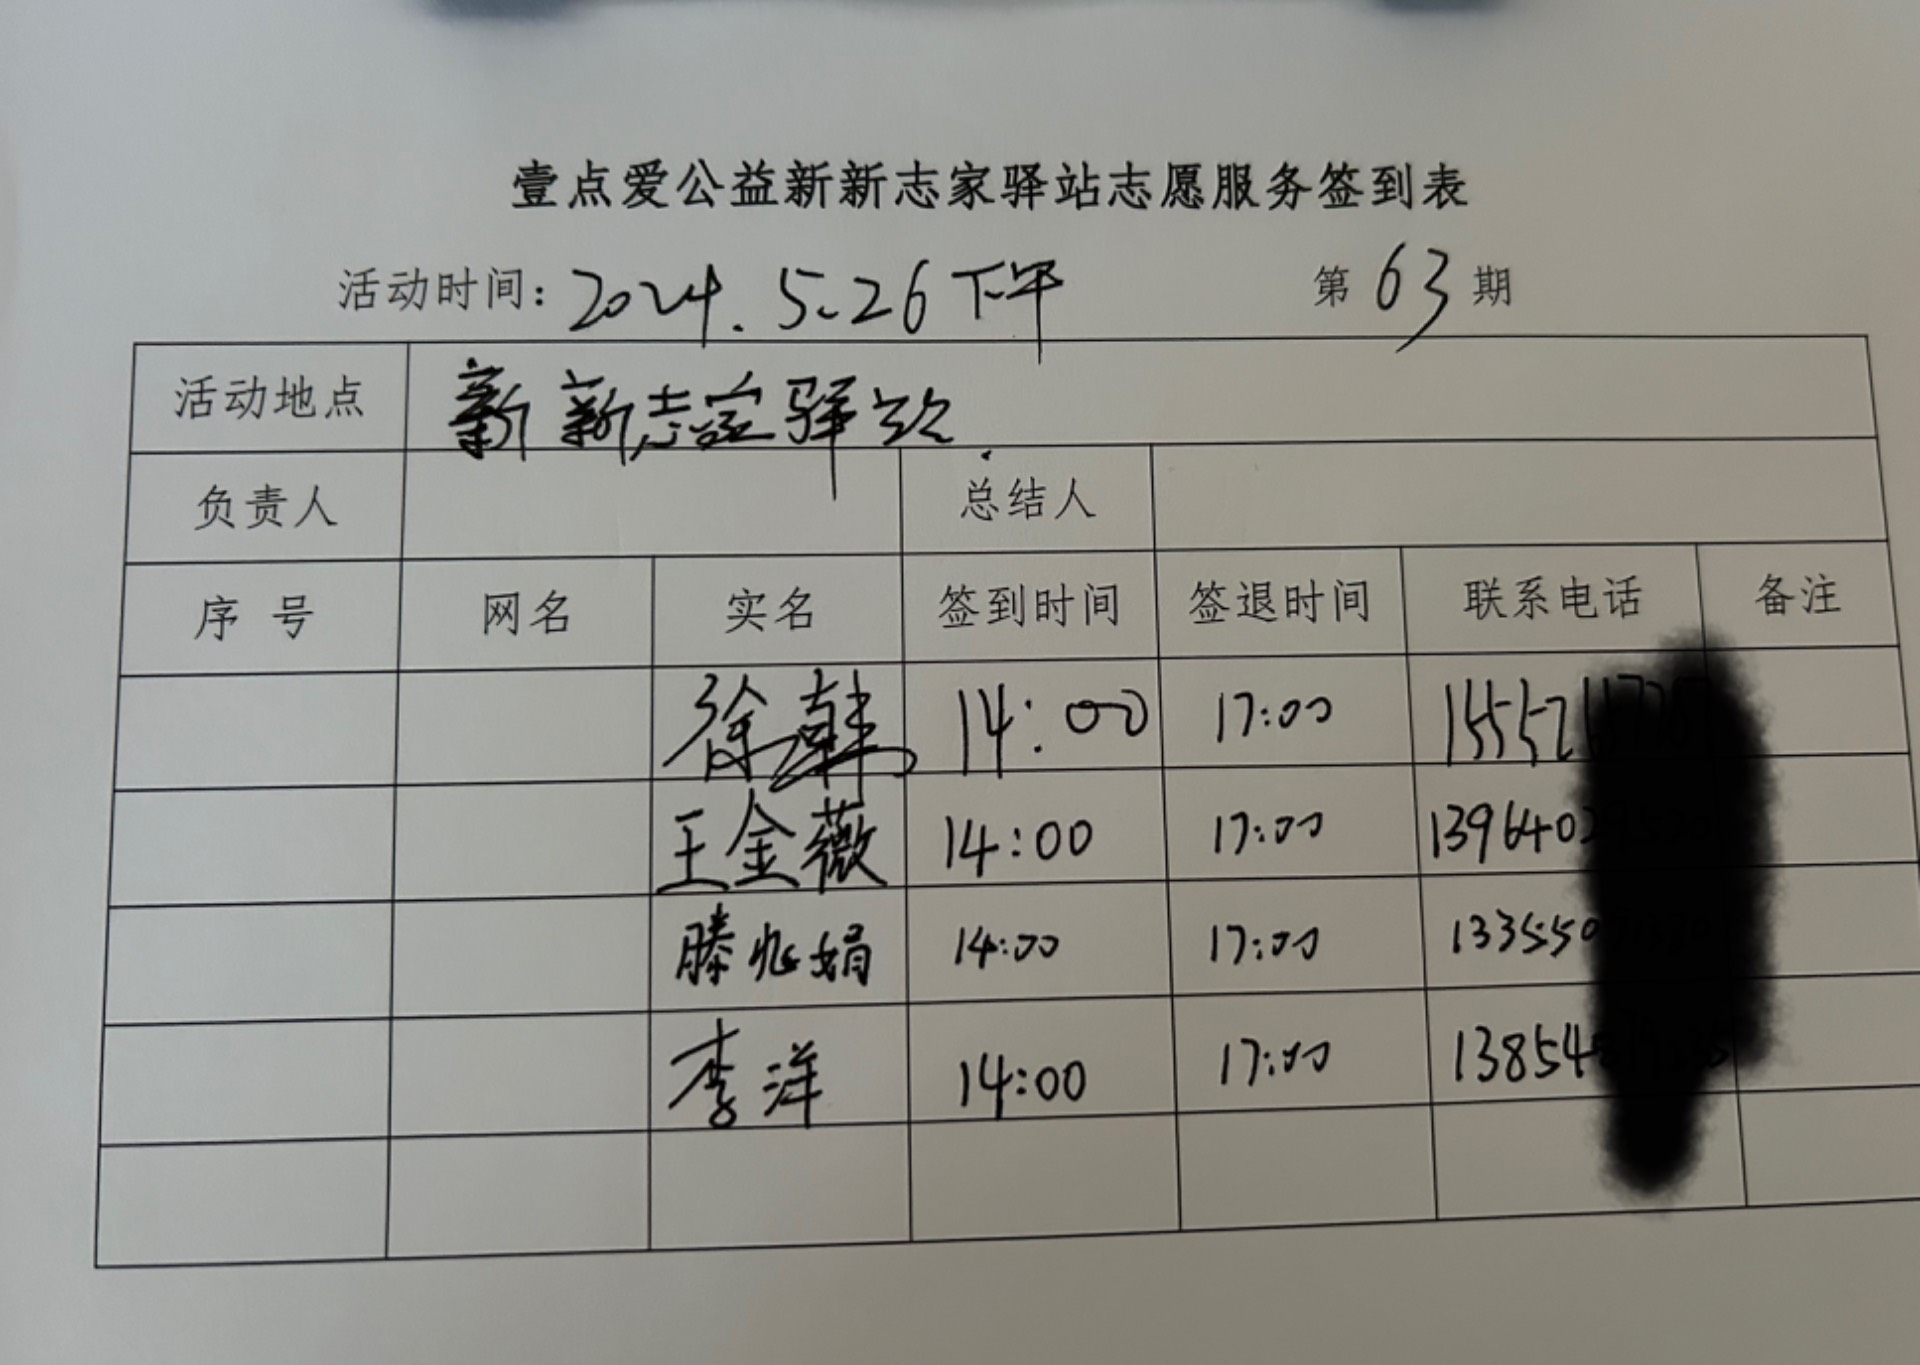 壹点爱公益新新志家驿站志愿服务签到表
活动时间：2024.5.26下午 第63期
活动地点 新新志家驿站
负责人 总结人
序号 网名 实名 签到时间 签退时间 联系电话 备注
徐韩 14:00 17:00 15552
王金薇 14:00 17:00 1396402
滕兆娟 14:00 17:00 133550
李洋 14:00 17:00 13854